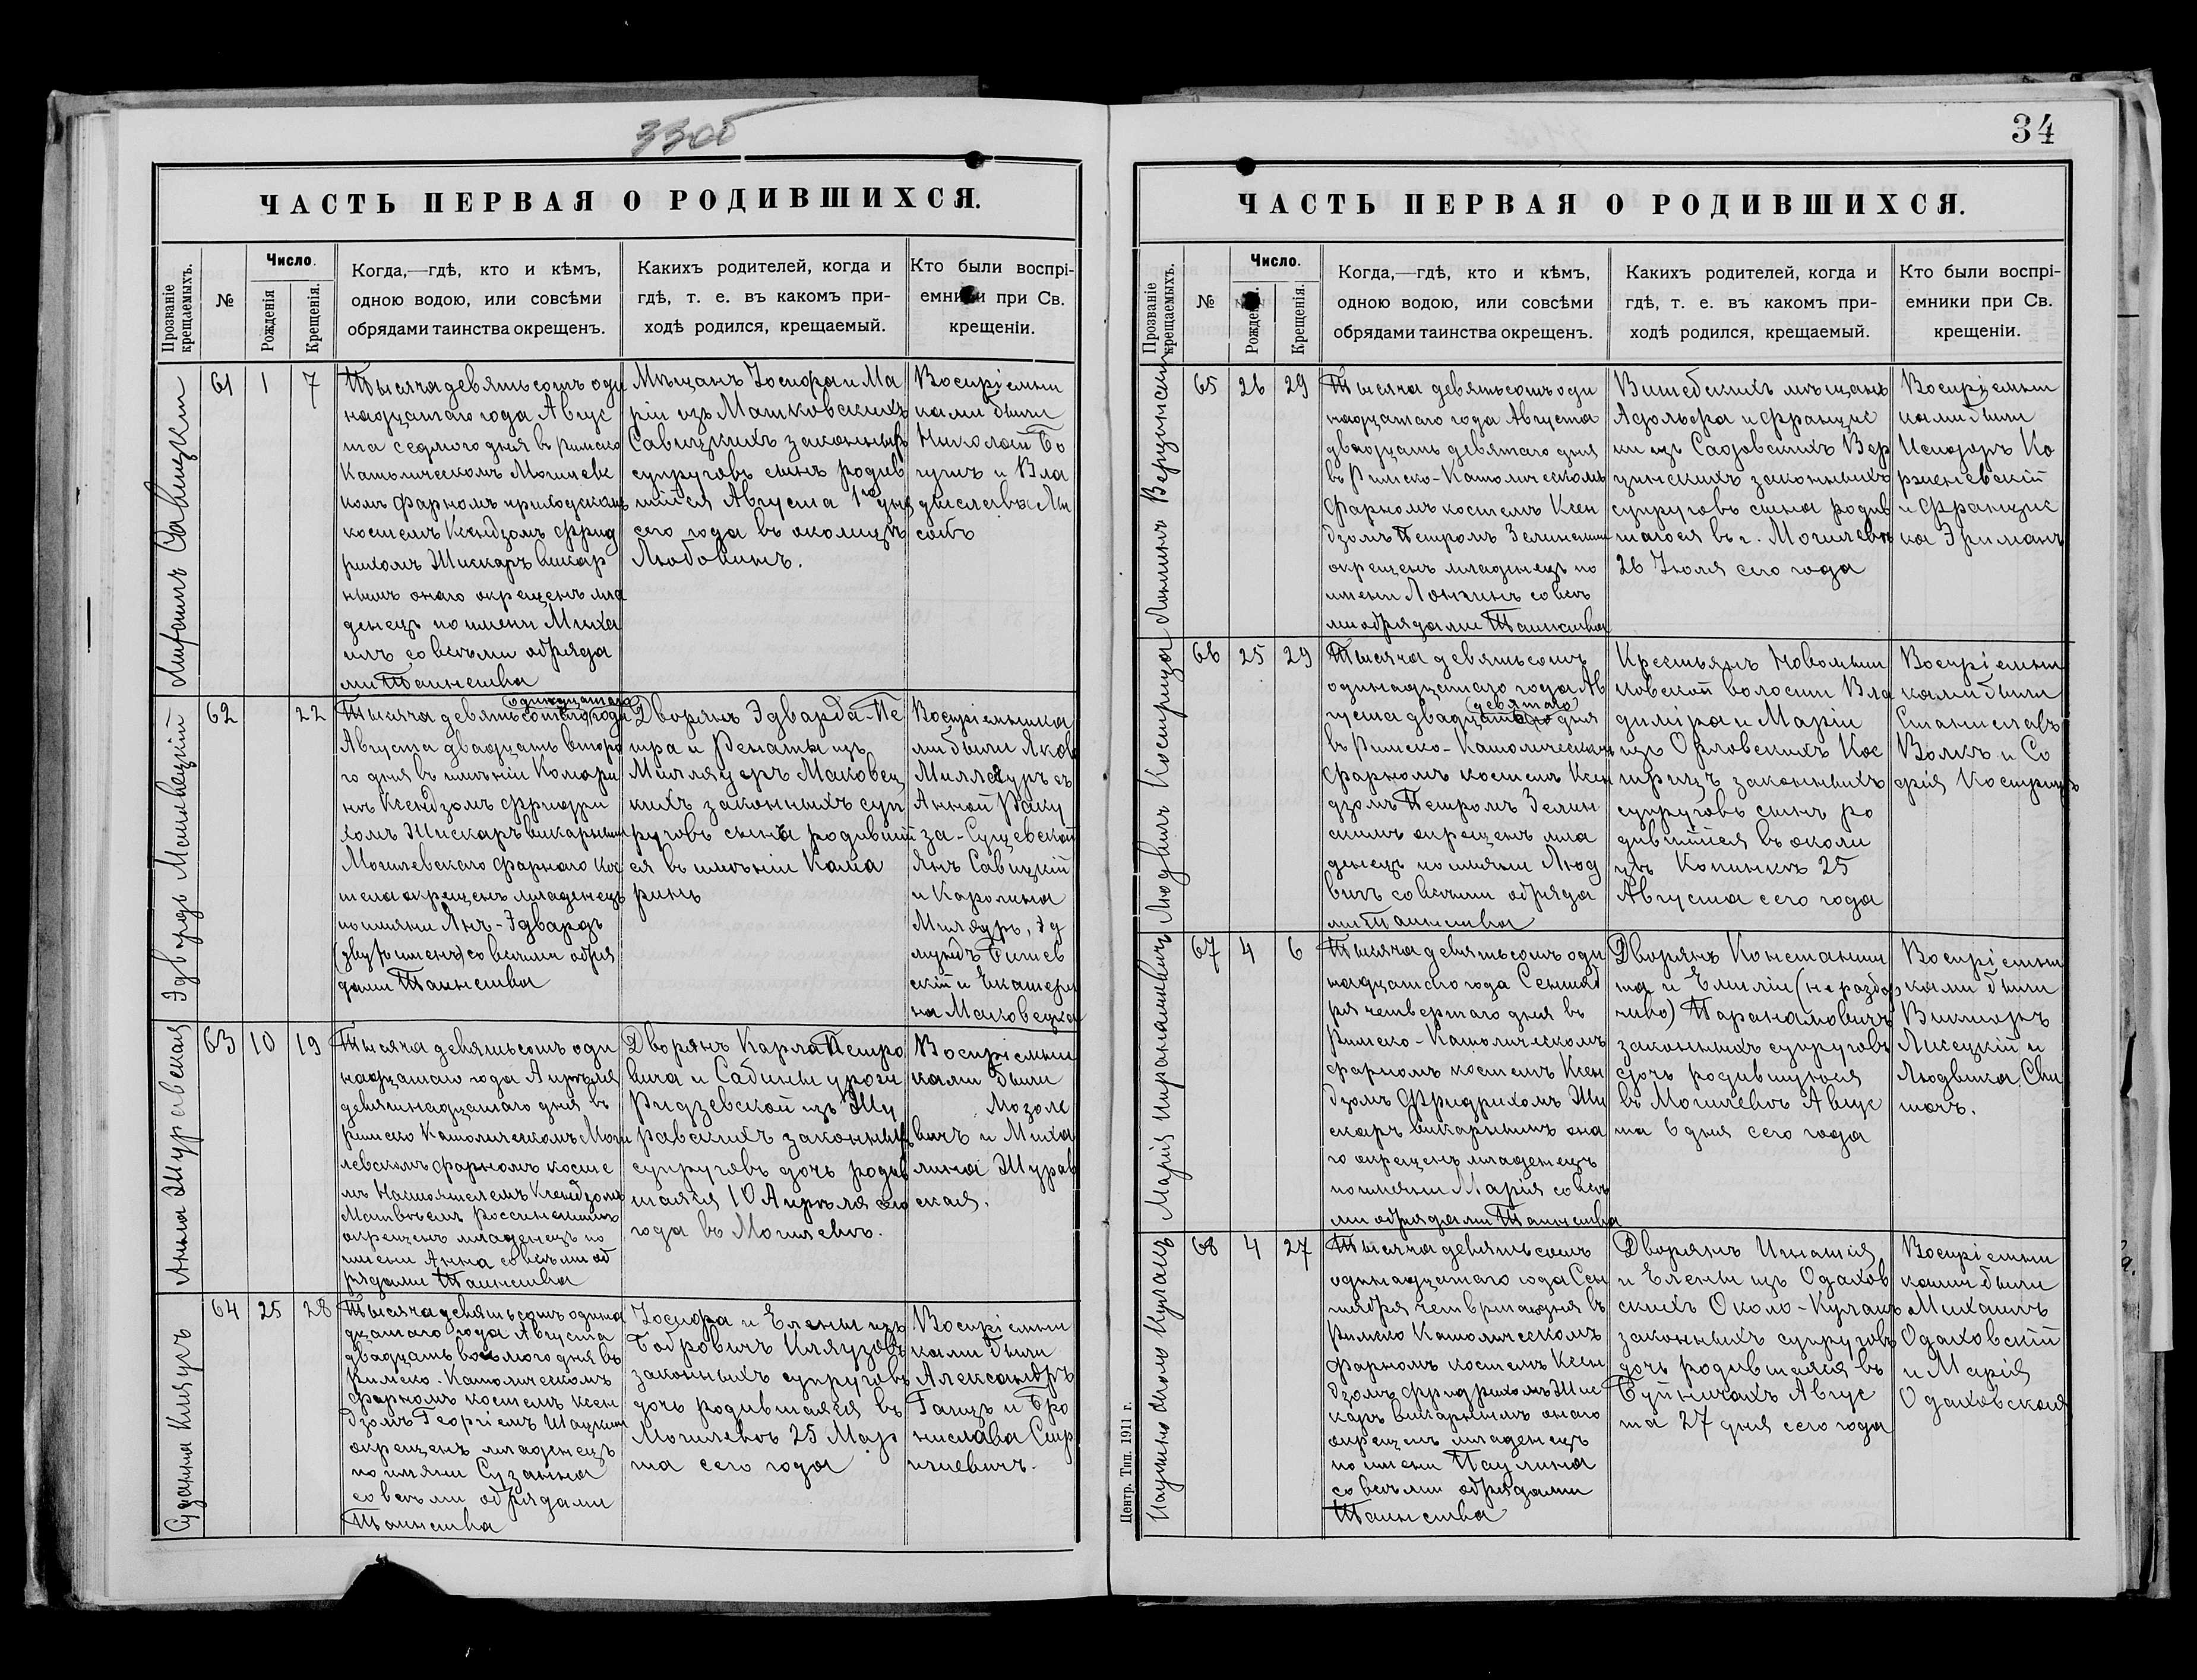 33 об
ЧАСТЬ ПЕРВАЯ О РОДИВШИХСЯ.
Прозваніе крещаемыхъ.
№
Число.
Рожденія
Крещенія.
Когда,—гдѣ, кто и кѣмъ,
одною водою, или совсѣми
обрядами таинства окрещенъ.
Какихъ родителей, когда и
гдѣ, т. е. въ какомъ при-
ходѣ родился, крещаемый.
Кто были воспрі-
емники при Св.
крещеніи.
Савицкій
61
1
7
Тысяча девятьсотъ оди
надцатаго года Авгус
та седьмого дня въ римско
Католическомъ Могилевс
комъ фарномъ приходскомъ
костелѣ Ксендзомъ Фрид
рихомъ Шискаръ викар
нымъ онаго окрещенъ мла
денецъ по имени Миха
илъ со всѣми обряда
ми Таинства
Мѣщанъ Іосифа и Ма
ріи изъ Матковскихъ
Савицкихъ законныхъ
супруговъ сынъ родив
шійся Августа 1го дня
сего года въ околицѣ
Любовинѣ.
Воспріемни
ками были
Николай Бо
гушъ и Вла
дислава Ли
совъ
Эдвардъ Маковецкій
62
22
одинадцатаго
Тысяча девятьсотаго года
Августа двадцать второ
го дня въ имѣніи Комари
нѣ Ксендзомъ Фридри
хомъ Шискаръ викарнымъ
Могилевскаго фарнаго кос
тела окрещенъ младенецъ
по имени Янъ-Эдвардъ
(двухъ именъ) со всѣми обря
дами Таинства
Дворянъ Эдварда-Пе
тра и Ренаты изъ
Миллауеръ Маковец
кихъ законныхъ суп
руговъ сына родивший
ся въ имѣніи Кома
ринѣ
Воспріемника
ми были Яковъ
Анной Раку
за-Сущевской
Янъ Савицкій
и Каролина
Миляуръ, Эд
мундъ
скій и Екатери
на Маковецкая
Анна Журавская
63
10
19
Тысяча девятьсотъ оди
надцатаго года Апрѣля
девятнадцатаго дня въ
римско Католическомъ Моги
левскомъ фарномъ косте
лѣ Настоятелемъ Ксендзомъ
окрещенъ младенецъ по
имени Анна со всѣми об
рядами Таинства
Дворянъ Карла Петро
вича и Сабины урожд
Ридзевской изъ Жу
равскихъ законныхъ
супруговъ дочь родив
шаяся 10 Апрѣля сего
года въ Могилевѣ.
Воспріемни
ками были
Мозоле
вичъ и Миха
лина Журав
ская.
Сузанна Кляузъ
64
25
28
Тысяча девятьсотъ одина
дцатаго года Августа
двадцать восьмого дня въ
Римско-Католическомъ
фарномъ костелѣ Ксен
дзомъ Георгіемъ Шацкимъ
окрещенъ младенецъ
по имяни Сузанна
со всѣми обрядами
Таинства
Іосифа и Елены изъ
Бобровичъ Кляузовъ
законныхъ супруговъ
дочь родившаяся въ
Могилевѣ 25 Мар
та сего года
Воспріемни
ками были
Александръ
Ганцъ и Бро
нислава
34
ЧАСТЬ ПЕРВАЯ О РОДИВШИХСЯ.
Прозваніе крещаемыхъ.
№
Число.
Рожденія.
Крещенія.
Когда,—гдѣ, кто и кѣмъ,
одною водою, или совсѣми
обрядами таинства окрещенъ.
Какихъ родителей, когда и
гдѣ, т. е. въ какомъ при-
ходѣ родился, крещаемый.
Кто были воспрі-
емники при Св.
крещеніи.
Лонгинъ Верцинскій
65
26
29
Тысяча девятьсотъ оди
надцатаго года Августа
двадцать девятаго дня
въ Римско-Католическомъ
фарномъ костелѣ Ксен
дзомъ Петромъ Зелинскимъ
окрещенъ младенецъ по
имени Лонгинъ со всѣ
ми обрядами Таинства
Витебскихъ мѣщанъ
Адольфа и Францис
ки изъ Садовскихъ Вер
цинскихъ законныхъ
супруговъ сына родив
шагося въ г. Могилевѣ
26 Іюля сего года
Воспріемни
ками были
Исидоръ Ко
рженевскій
и Францис
ка Эриманъ
Людвигъ Костріца
66
25
29
Тысяча девятьсотъ
одинадцатаго года Ав
девятаго
густа двадцатаго дня
въ Римско-Католическомъ
фарномъ костелѣ Ксен
дзомъ Петромъ Зелин
скимъ окрещенъ мла
денецъ по имяни Люд
вигъ со всѣми обряда
ми Таинства
Крестьянъ Новомыш
ковской волости Вла
диміра и Маріи
изъ Орловскихъ Кос
трицъ законныхъ
супруговъ сынъ ро
дившійся въ околи
цѣ Копинкѣ 25
Августа сего года
Воспріемни
ками были
Станиславъ
Волкъ и Со
фія Кострица
67
4
6
Тысяча девятьсотъ оди
надцатаго года Сентяб
ря четвертаго дня въ
Римско-Католическомъ
фарномъ костелѣ Ксен
дзомъ Фридрихомъ Ши
скаръ викарнымъ она
го окрещенъ младенецъ
по имяни Марія со всѣ
ми обрядами Таинства
Дворянъ Константи
на и Емиліи (неразбор
чиво) Паранамовичъ
законныхъ супруговъ
дочь родившуюся
въ Могилевѣ Авгус
та 6 дня сего года
Воспріемни
ками были
Викторъ
Лисецкій и
Людвика
68
4
27
Тысяча девятьсотъ
одинадцатаго года Сен
тября четвртаго дня въ
Римско Католическомъ
фарномъ костелѣ Ксен
дзомъ Фридрихомъ Шис
каръ викарнымъ онаго
окрещенъ младенецъ
по имени Паулина
со всѣми обрядами
Таинства
Дворянъ Игнатія
и Елены изъ Одахов
скихъ Около-Кулакъ
законныхъ супруговъ
дочь родившаяся въ
Буйничахъ Авгус
та 27 дня сего года
Воспріемни
ками были
Михаилъ
Одаховскій
и Марія
Одаховская
Паулина Около Кулакъ
Центр. Тип. 1911 г.